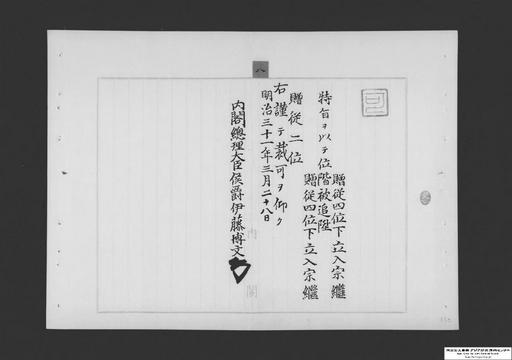 可
贈従四位下立入宗継
特旨ヲ以テ位階被追陞
贈従四位下立入宗継
贈従二位
右謹テ裁可ヲ仰ク
明治三十一年三月二十八日
内閣總理大臣侯爵伊藤博文
八
内閣